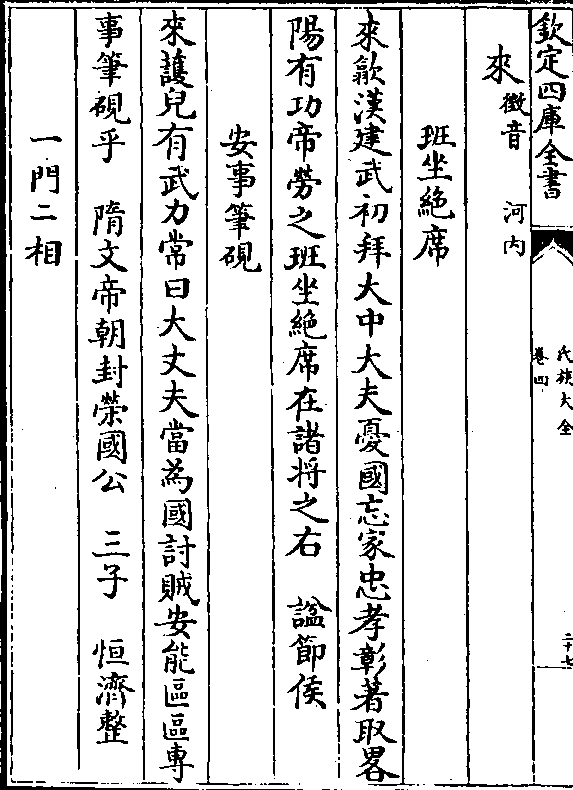 欽定四庫全書
氏族大全
卷四
二十七
來 徵音 河内
班坐絶席
來歙漢建武初拜大中大夫憂國忘家忠孝彰著取畧
陽有功帝勞之班坐絶席在諸將之右 諡節侯
安事筆硯
來護兒有武力常曰大丈夫當為國討賊安能區區專
事筆硯乎 隋文帝朝封榮國公 三子 恒濟整
一門二相